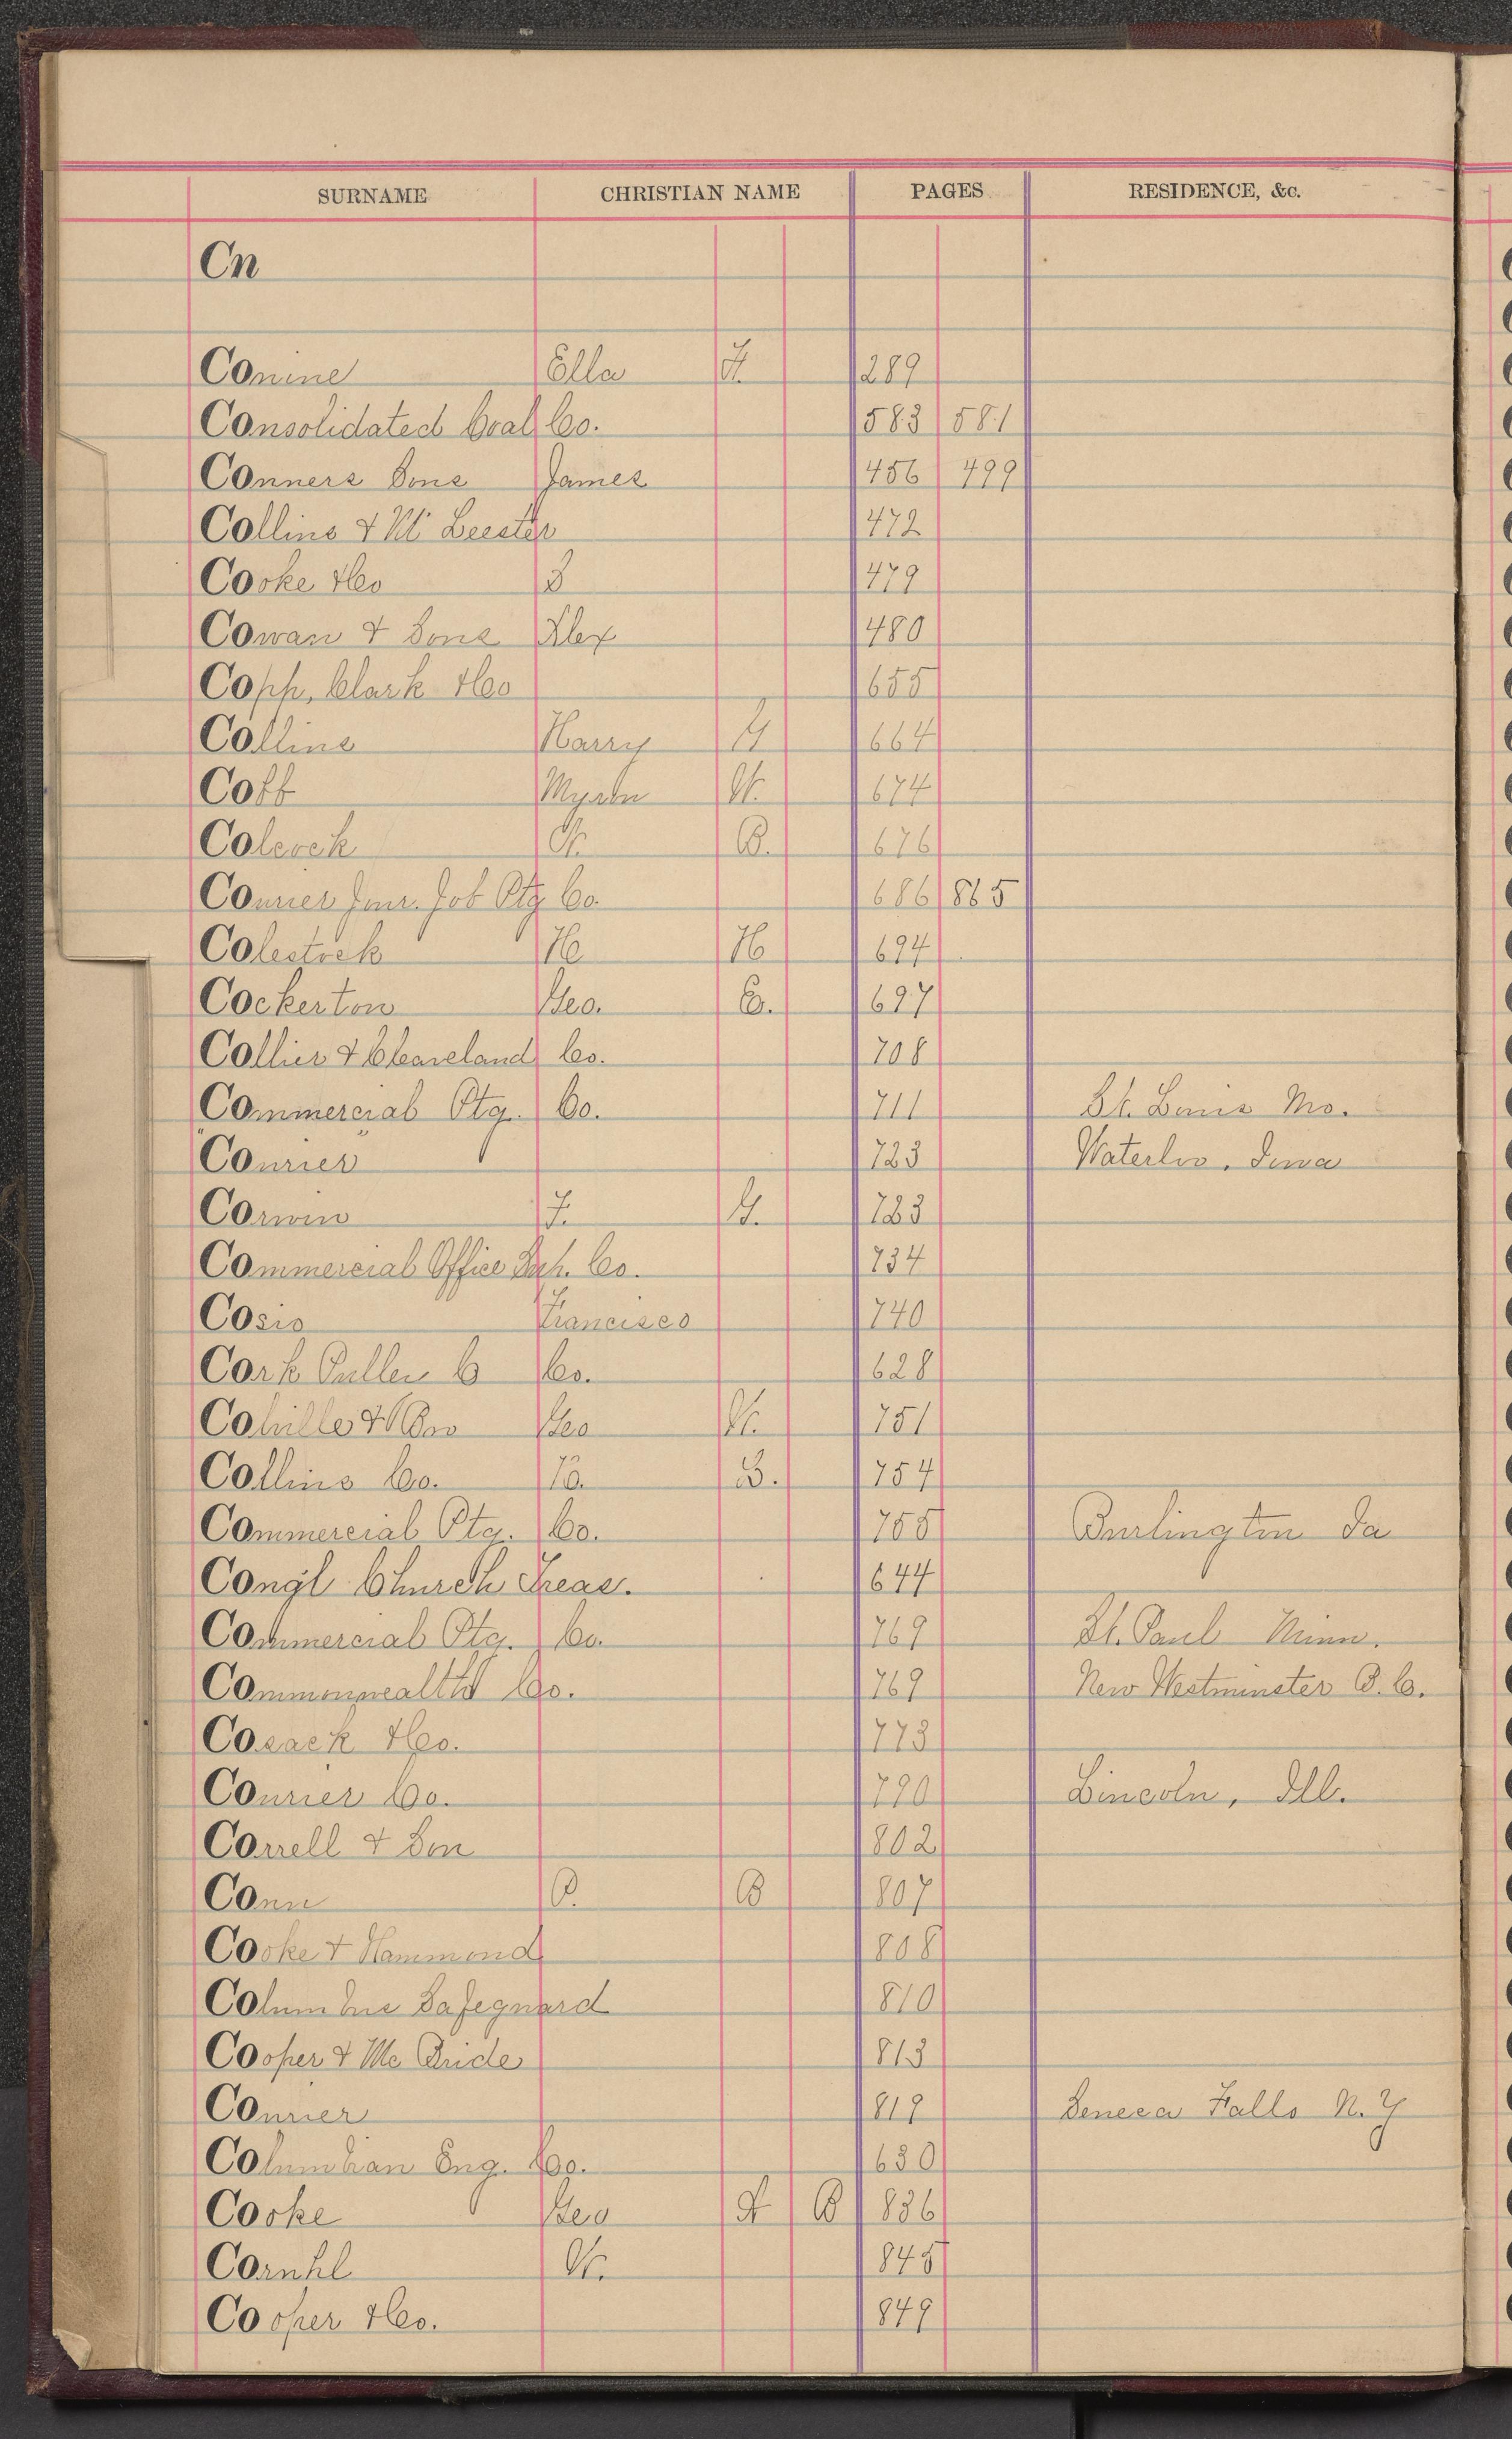 SURNAME CHRISTIAN NAME PAGES RESIDENCE, &c.
Cn
Conine Ella F. 289
Consolidated Coal Co. 583 581
Conners Sons James 456 499
Collins & Mc Leester 472
Cooke & Co 479
Cowan & Sons Alex 480
Copp, Clark & Co 655
Collins Harry G 664
Coff Myron W. 674
Colcock W. B. 676
Courier Jour. Job Ptg Co. 686 865
Colestock H H 694
Cockerton Geo. C. 697
Collier & Cleaveland Co. 708
Commercial Ptg. Co. 711 St. Louis Mo.
Courier 723 Waterloo. Iowa
Corwin F. G. 733
Commercial Office Co. 734
Cosio Francisco 740
Cork Puller Co. 628
& Bro Geo W. 751
Collins Co. T. B. 754
Commercial Ptg. Co. 755 Burlington Ia
Congl Church Treas. 644
Commercial Ptg. Co. 769 St. Paul Minn.
Commonwealth Co. 769 New Westminster B. C.
Cosack & Co. 773
Courier Co. 790 Lincoln, Ill.
Correll & Son 802
Conn P. B 807
Cooke & Hammond 808
Columbus Safeguard 810
Cooper & Mc Bride 813
Courier 819 Seneca Falls N. Y
Columbian Eng. Co. 630
Cooke Geo F B 836
Cornhl W. 845
Cooper & Co. 849